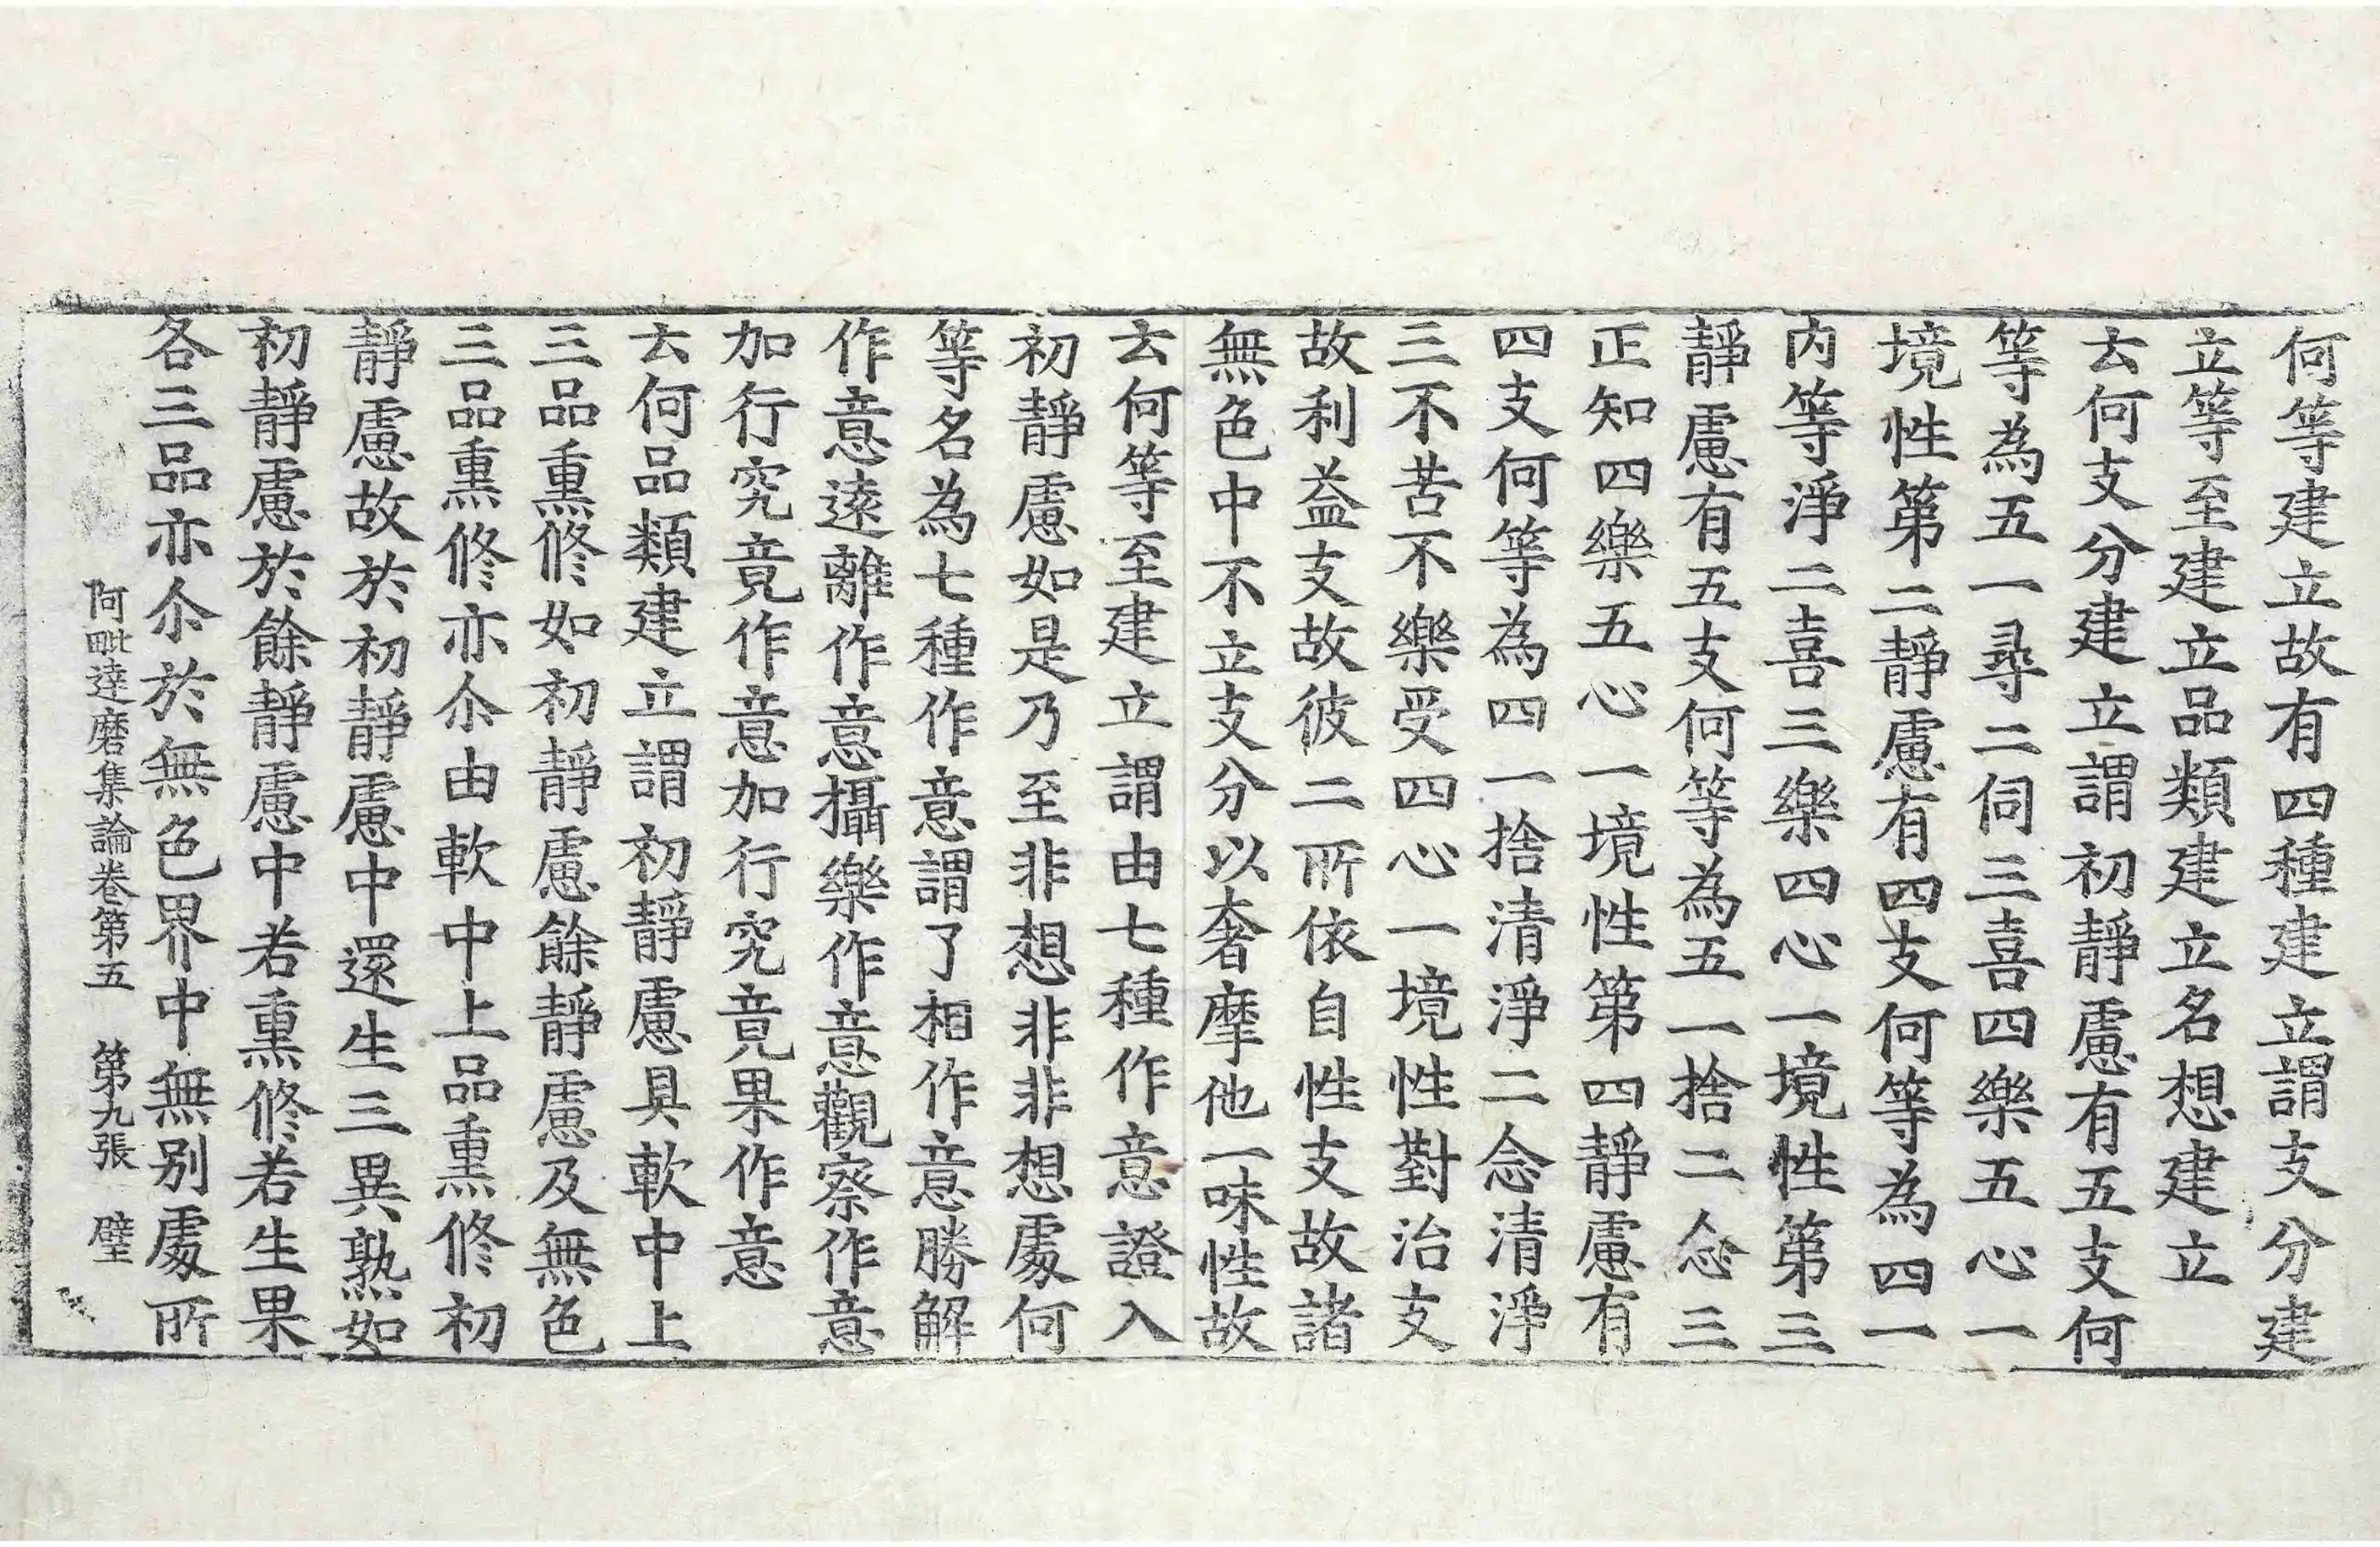 何等建立故有四種建立謂支分建
立等至建立品類建立名想建立
去何支分建立謂初靜慮有五支何
等為五一尋二伺三喜四樂五心一
境性第二靜慮有四支何等為四一
内等淨二喜三樂四心一境性第三
靜慮有五支何等為五一捨二念三
正知四樂五心一境性第四靜慮有
四支何等為四一捨清淨二念清淨
三不苦不樂受四心一境性對治支
故利益支故彼二所依自性支故諸
無色中不立支分以奢摩他一味性故
去何等至建立謂由七種作意證入
初靜慮如是乃至非想非非想處何
等名為七種作意謂了相作意勝解
作意遠離作意攝樂作意觀察作意
加行究竟作意加行究竟果作意
去何品類建立謂初靜慮具軟中上
三品熏修如初靜慮餘靜慮及無色
三品熏修亦尒由軟中上品熏修初
靜慮故於初靜慮中還生三異熟如
初靜慮於餘靜慮中若熏修若生果
各三品亦尒於無色界中無別處所
阿毗達磨集論卷第五 第九張 壁